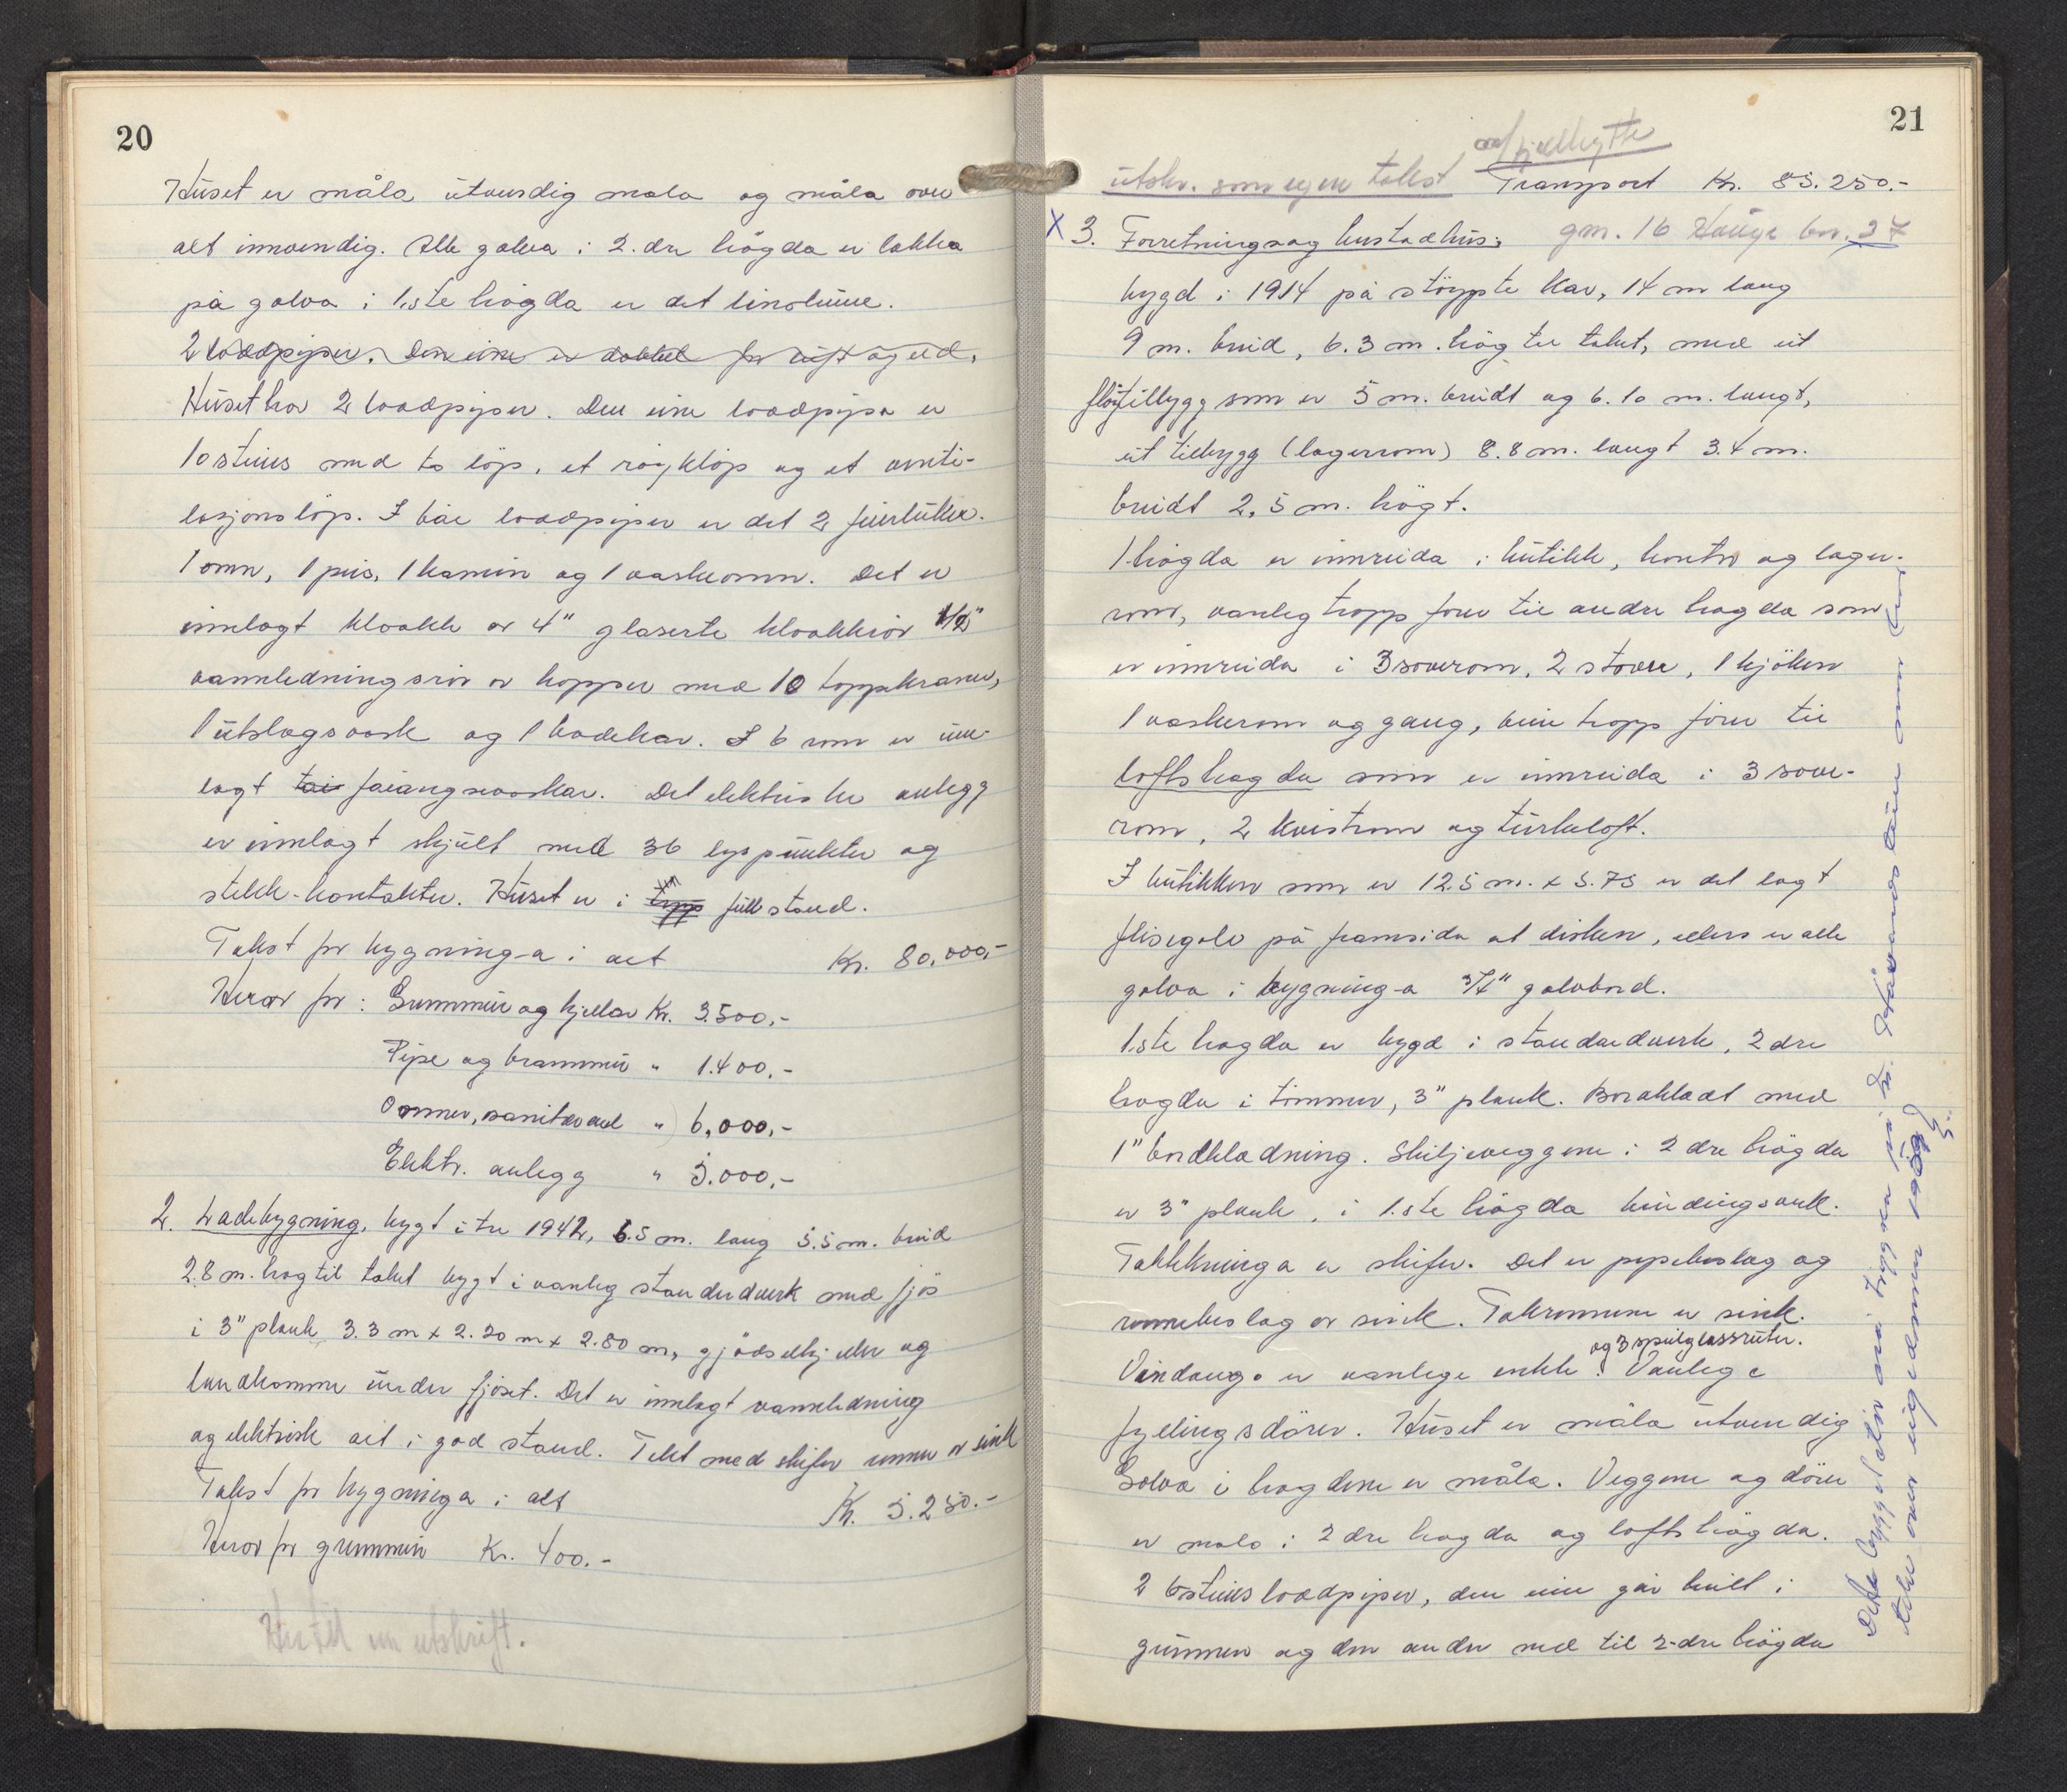 20
Huset er måla utvendig mala og måla over
alt innvendig. Alle golva i 2. dre högda er lakka
på golva i 1.ste högda er det linoleume.
2 loddpiper. Den eine er dobbel for luft og eld.
Huset har 2 loddpiper. Den eine loddpipa er
10 steins med to löp, et röyklöp og et venti-
lasjonslöp. I båe loddpiper er det 2 feierluker.
1 omn, 1 peis, 1 kamin og 1 vaskeomn. Det er
innlagt kloakk av 4" glaserte kloakkrör 1/2"
vannledningsrör av kopper med 10 tappkraner,
1 utslagsvask og 1 badekar. I 6 rom er inn-
lagt faiangsevaskar. Det elektriske anlegg
er innlagt skjult med 36 lyspunkter og
stikk-kontakter. Huset er i full stand.
Takst for bygning-a i alt Kr. 80.000,-
Herav for: Grunnmur og kjellar Kr. 3.500,-
Pipe og brannmur " 1.400.-
Omner, sanitæranl " 6,000,-
Elektr. anlegg " 5.000,-
2. Ladebygning, bygt i tre 1942, 6.5 m. lang 5.5 m. breid
2.8 m. høg til taket bygt i vanleg standardverk med fjös
i 3" plank 3.3 m x 2.20 m x 2.80 m, gjödselkjeller og
landkomme under fjöset. Det er innlagt vannledning
og elektrisk alt i god stand. Tekt med skifer renner av sink
Takst for bygninga i alt Kr. 5.250.-
Herav for grunnmur Kr. 400.-
Her til en utskrift.
21
utskr. som egen takst Transport Kr. 85.250.-
X 3. Forretnings og bustadhus: gnr. 16 Hauge bnr. 27
bygd i 1914 på stöypte kar, 14 m lang
9 m. breid, 6.3 m. høg til taket, med eit
flöytilbygg som er 5 m. breidt og 6.10 m. langt,
eit tilbygg (lagerrom) 8.8 m. langt 3.4 m.
breidt 2,5 m. högt.
1 högda er innreida i butikk, kontor og lager-
rom, vanleg tropp förer til andre högda som
er innreida i 3 soverom, 2 stover, 1 kjöken
1 vaskerom og gang, bein tropp förer til
loftshögda som er innreida i 3 sove-
rom, 2 kvistrom og turkeloft.
I butikken som er 12.5 m. x 5.75 er det lagt
flisegolv på framsida at disken, ellers er alle
golva i bygning-a 3/4" golvbord.
1.ste högda er bygd i standardverk, 2 dre
högda i tömmer, 3" plank. Bordkledt med
1" bordkledning. Skiljeveggene i 2 dre högda
er 3" plank, i 1.ste högda bindingsverk.
Taktekninga er skifer. Det er pipebeslag og
rennebeslag av sink. Takrennene er sink.
og 3 speilglassruter.
Vindaugo er vanlege enkle. Vanlege
fyllingsdörer. Huset er måla utvendig
Golva i högdene er måla. Veggene og dörer
er mala i 2 dre högda og loftshögda.
2 6 steins loddpiper, den eine går heilt i
grunnen og den andre ned til 2-dre högda